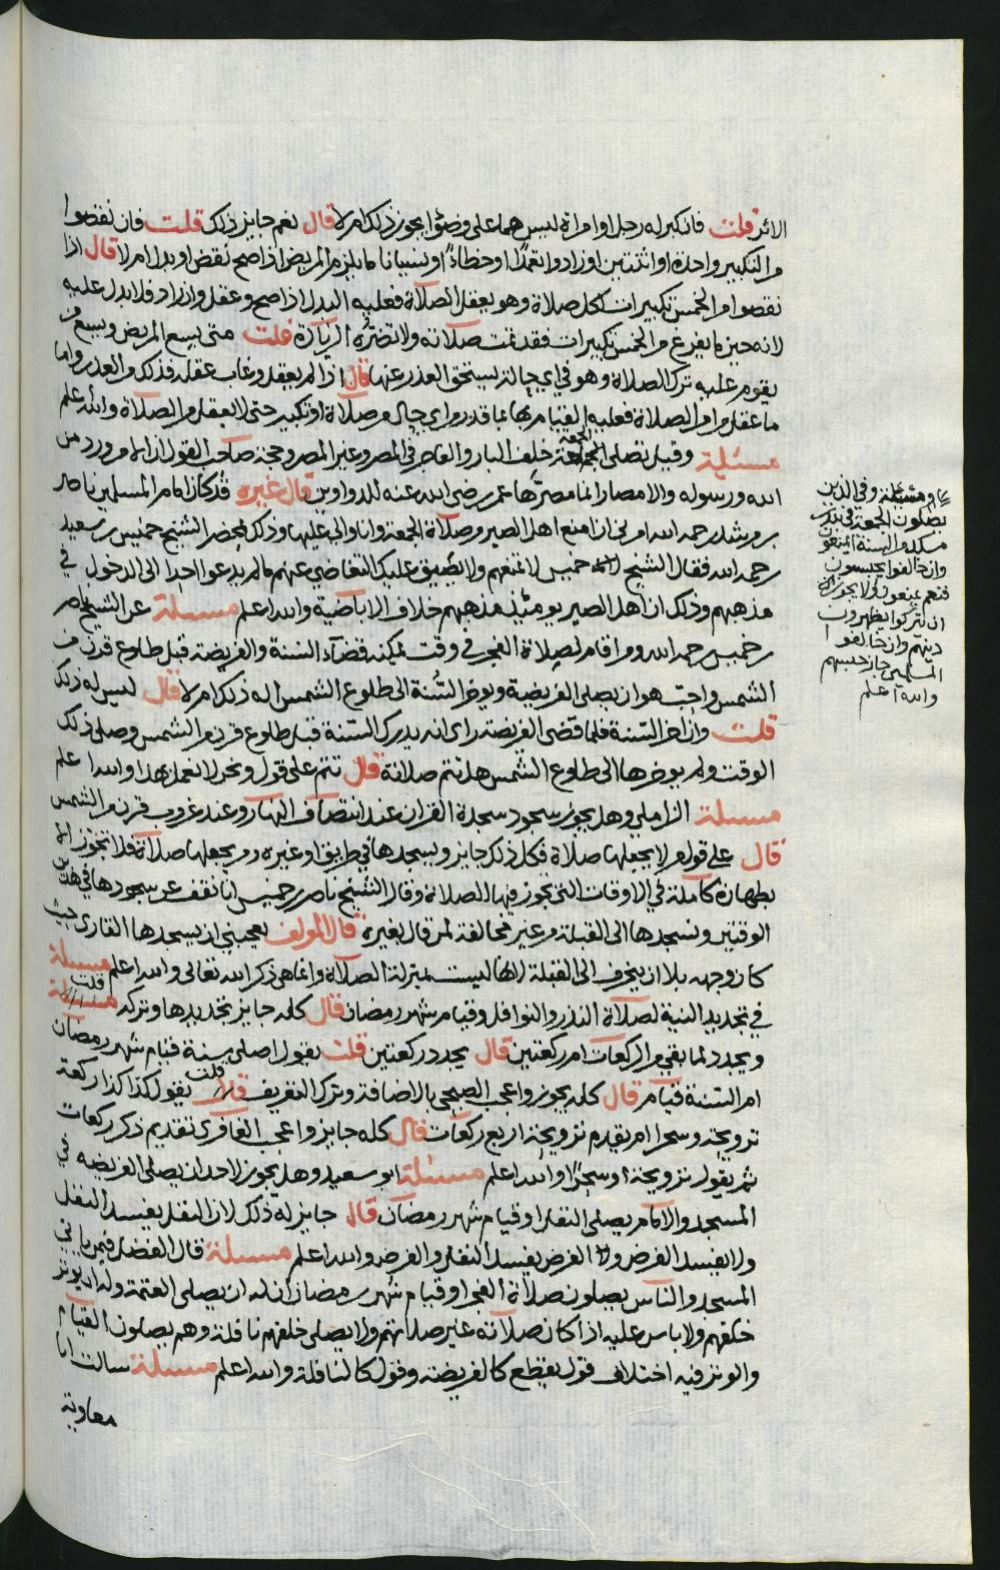 الاثر قلت فان كبر له رجل او امراة ليس هما على وضوء ايجوز ذلك ام لا قال نعم جايز ذلك قلت فان نقصوا
من التكبير واحدة او اثنتين او زادوا تعمدًا او خطاءً او نسيانا ما يلزم المريض اذا صح نقض او بدل ام لا قال اذا
نقصوا من الخمس تكبيرات لكل صلاة وهو يعقل الصلاة فعليه البدل اذا صح وعقل وان زاد فلا بدل عليه
لانه حين ما يفرغ من الخمس تكبيرات فقد تمت صلاته ولا تضره الزيادة قلت متى يسع المريض ويسع من
يقوم عليه ترك الصلاة وهو في اي حالة يستحق العذر عنها قال اذا لم يعقل وغاب عقله فذلك من العذر واما
ما عقل من امر الصلاة فعليه القيام بها بما قدر من اي حال من صلاة او تكبير حتى لا يعقل من الصلاة والله اعلم
مسئلة وقيل تصلى الجمعة خلف البار والفاجر في المصر وغير المصر وحجة صاحب القول ان الامر ورد من
الله ورسوله والامصار انما مصرها عمر رضي الله عنه للدواوين قال غيره قد كان امام المسلمين ناصر
بن مرشد رحمه الله امرني ان امنع اهل الصير من صلاة الجمعة وانا والي عليها وذلك بمحضر الشيخ خميس بن سعيد
رحمه الله فقال الشيخ خميس لا تمنعهم ولا يضيق عليك التغاضي عنهم ما لم يدعوا احدا الى الدخول في
مذهبهم وذلك ان اهل الصير يومئذ مذهبهم خلاف الاباضية والله اعلم مسئلة عن الشيخ ناصر
بن خميس رحمه الله ومن اقام لصلاة الفجر في وقت يمكنه قضآء السنة والفريضة قبل طلوع قرن من
الشمس واحب هو ان يصلي الفريضة ويوخر السُّنة الى طلوع الشمس اله ذلك ام لا قال ليس له ذلك
قلت وان اخر السنة فلما قضى الفريضة راى انه يدرك السنة قبل طلوع قرن من الشمس وصلى ذلك
الوقت ولم يوخرها الى طلوع الشمس هل تتم صلاته قال تتم على قول ونحن لا نعمل بهذا والله اعلم
مسئلة الزاملي وهل يجوز سجود سجدة القران عند انتصاف النهار وعند غروب قرن من الشمس
قال على قول من لا يجعلها صلاة فكل ذلك جايز ويسجدها في طريق او غيره ومن يجعلها صلاة فلا تجوز الا
بطهارة كاملة في الاوقات التي تجوز فيها الصلاة وقال الشيخ ناصر بن خميس انا نقف عن سجودها في هذين
الوقتين ونسجدها الى القبلة من غير مخالفة لمن قال بغيره قال المولف يعجبني ان يسجدها القاري حيث
كان وجهه بلا ان ينحرف الى القبلة لانها ليست بمنزلة الصلاة وانما هي ذكر الله تعالى والله اعلم مسئلة
في تجديد النية لصلاة النذر والنوافل وقيام شهر رمضان قال كله جايز تجديدها وتركه قلت
ويجدد لما بقي من الركعات ام ركعتين قال يجدد ركعتين قلت يقول اصلي سنة قيام شهر رمضان
ام السنة قيام قال كله يجوز واعجب الصبحي بالاضافة وترك التعريف قلت يقول كذا كذا ركعة
ترويحة وسحرا ام يقدم ترويحة اربع ركعات قال كله جايز واعجب الغافري تقديم ذكر ركعات
ثم يقول ترويحة او سحرًا والله اعلم مسئلة ابو سعيد وهل يجوز لاحد ان يصلي الفريضه في
المسجد والامام يصلي النفل او قيام شهر رمضان قال جايز له ذلك لان النفل يفسد النفل
ولا يفسد الفرض والفرض يفسد النفل والفرض والله اعلم مسئلة قال الفضل فيمن ياتي
المسجد والناس يصلون صلاة الفجر او قيام شهر رمضان ان له ان يصلي العتمة وله ان يوتر
خلفهم ولا باس عليه اذا كان صلاته غير صلاتهم ولا يصلي خلفهم نافلة وهم يصلون القيام
والوتر فيه اختلاف قول يقطع كالفريضة وقول كالنافلة والله اعلم مسئلة سالت ابا
معاوية
ومسئلة وفي الذين
يصلون الجمعة في
السنة ايمنعون
وان خالفوا يحبسون
فنعم يمنعون ولا يجوز
ان يتركوا يظهرون
دينهم وان خالفوا
المسلمين جاز حبسهم
والله اعلم